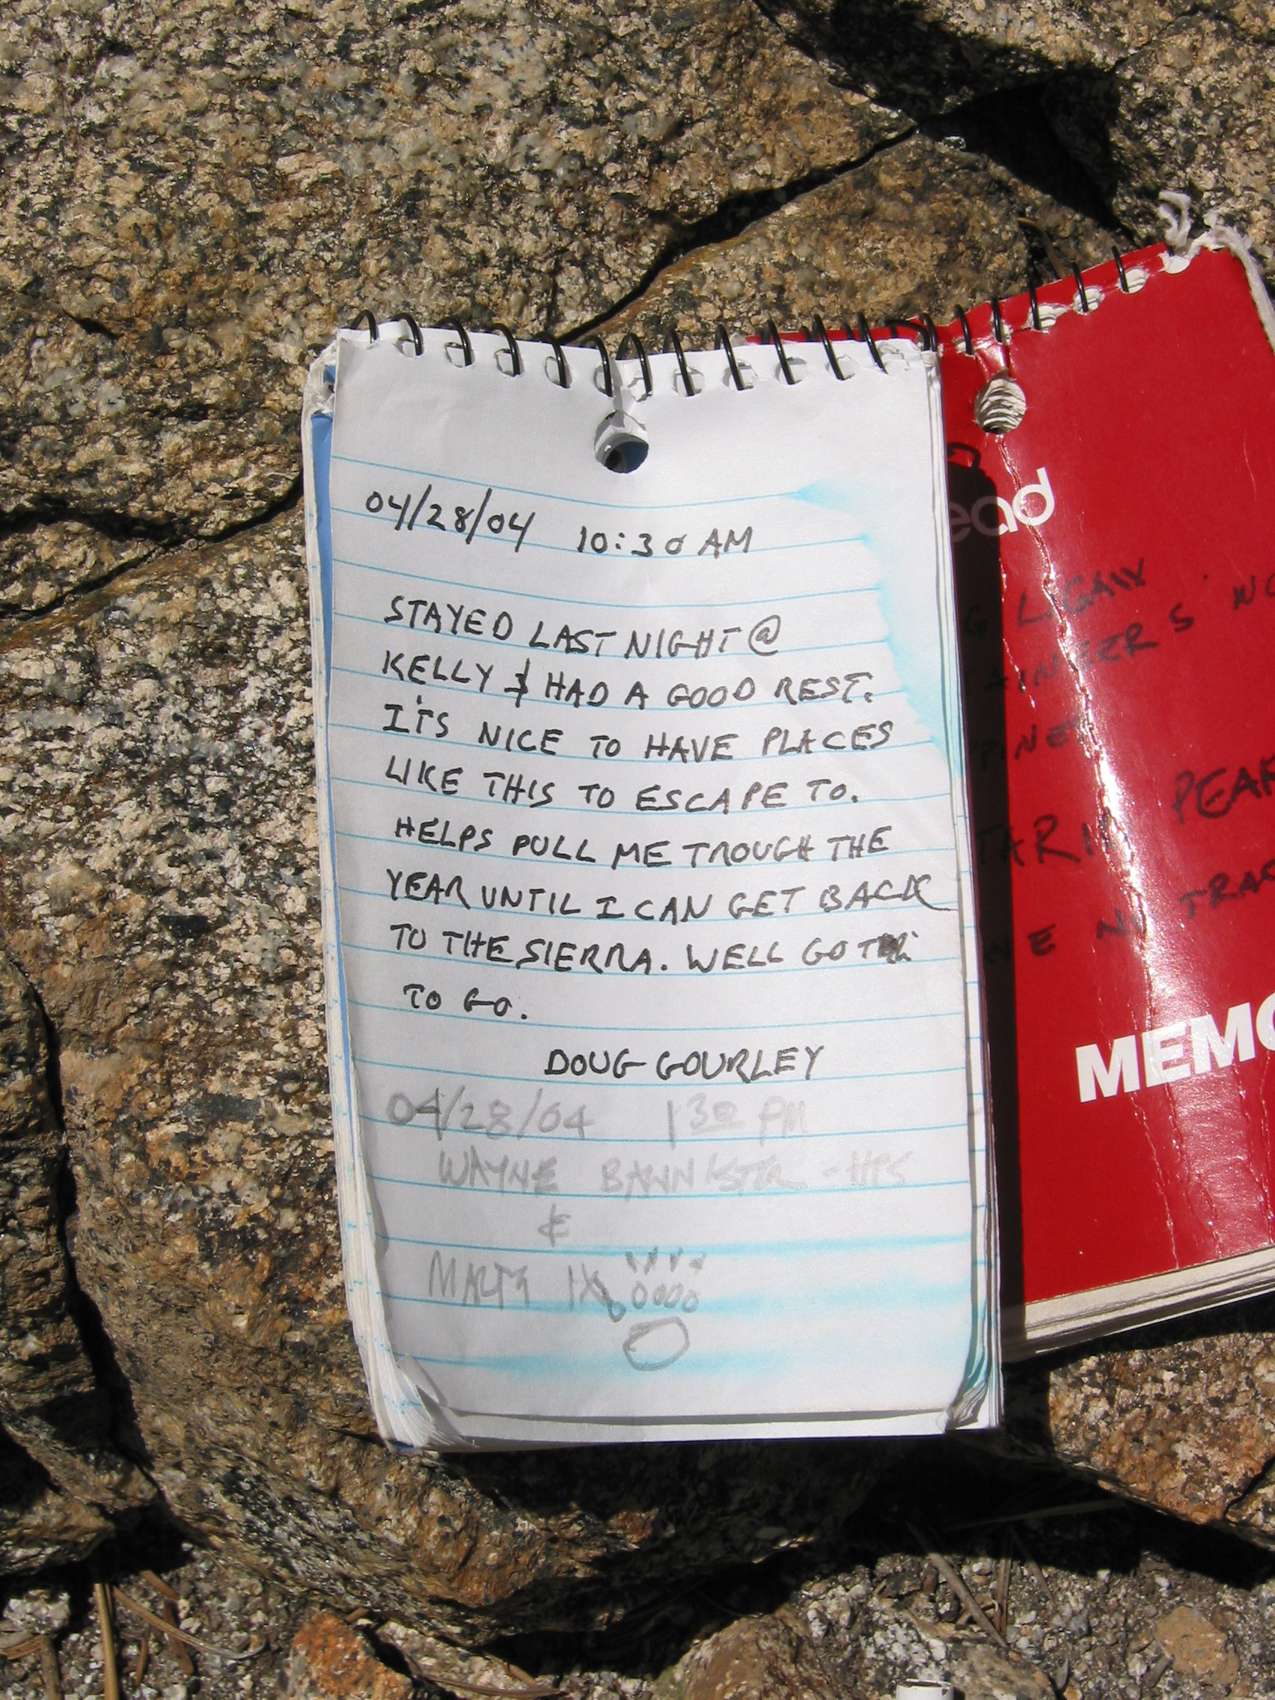 04/28/04 10:30 AM
STAYED LAST NIGHT @
KELLY & HAD A GOOD REST.
IT'S NICE TO HAVE PLACES
LIKE THIS TO ESCAPE TO.
HELPS PULL ME TROUGH THE
YEAR UNTIL I CAN GET BACK
TO THE SIERRA. WELL GO
TO GO.
DOUG GOURLEY
04/28/04 1:30 PM
WAYNE BANNISTER - HPS
&
ead
MEMO